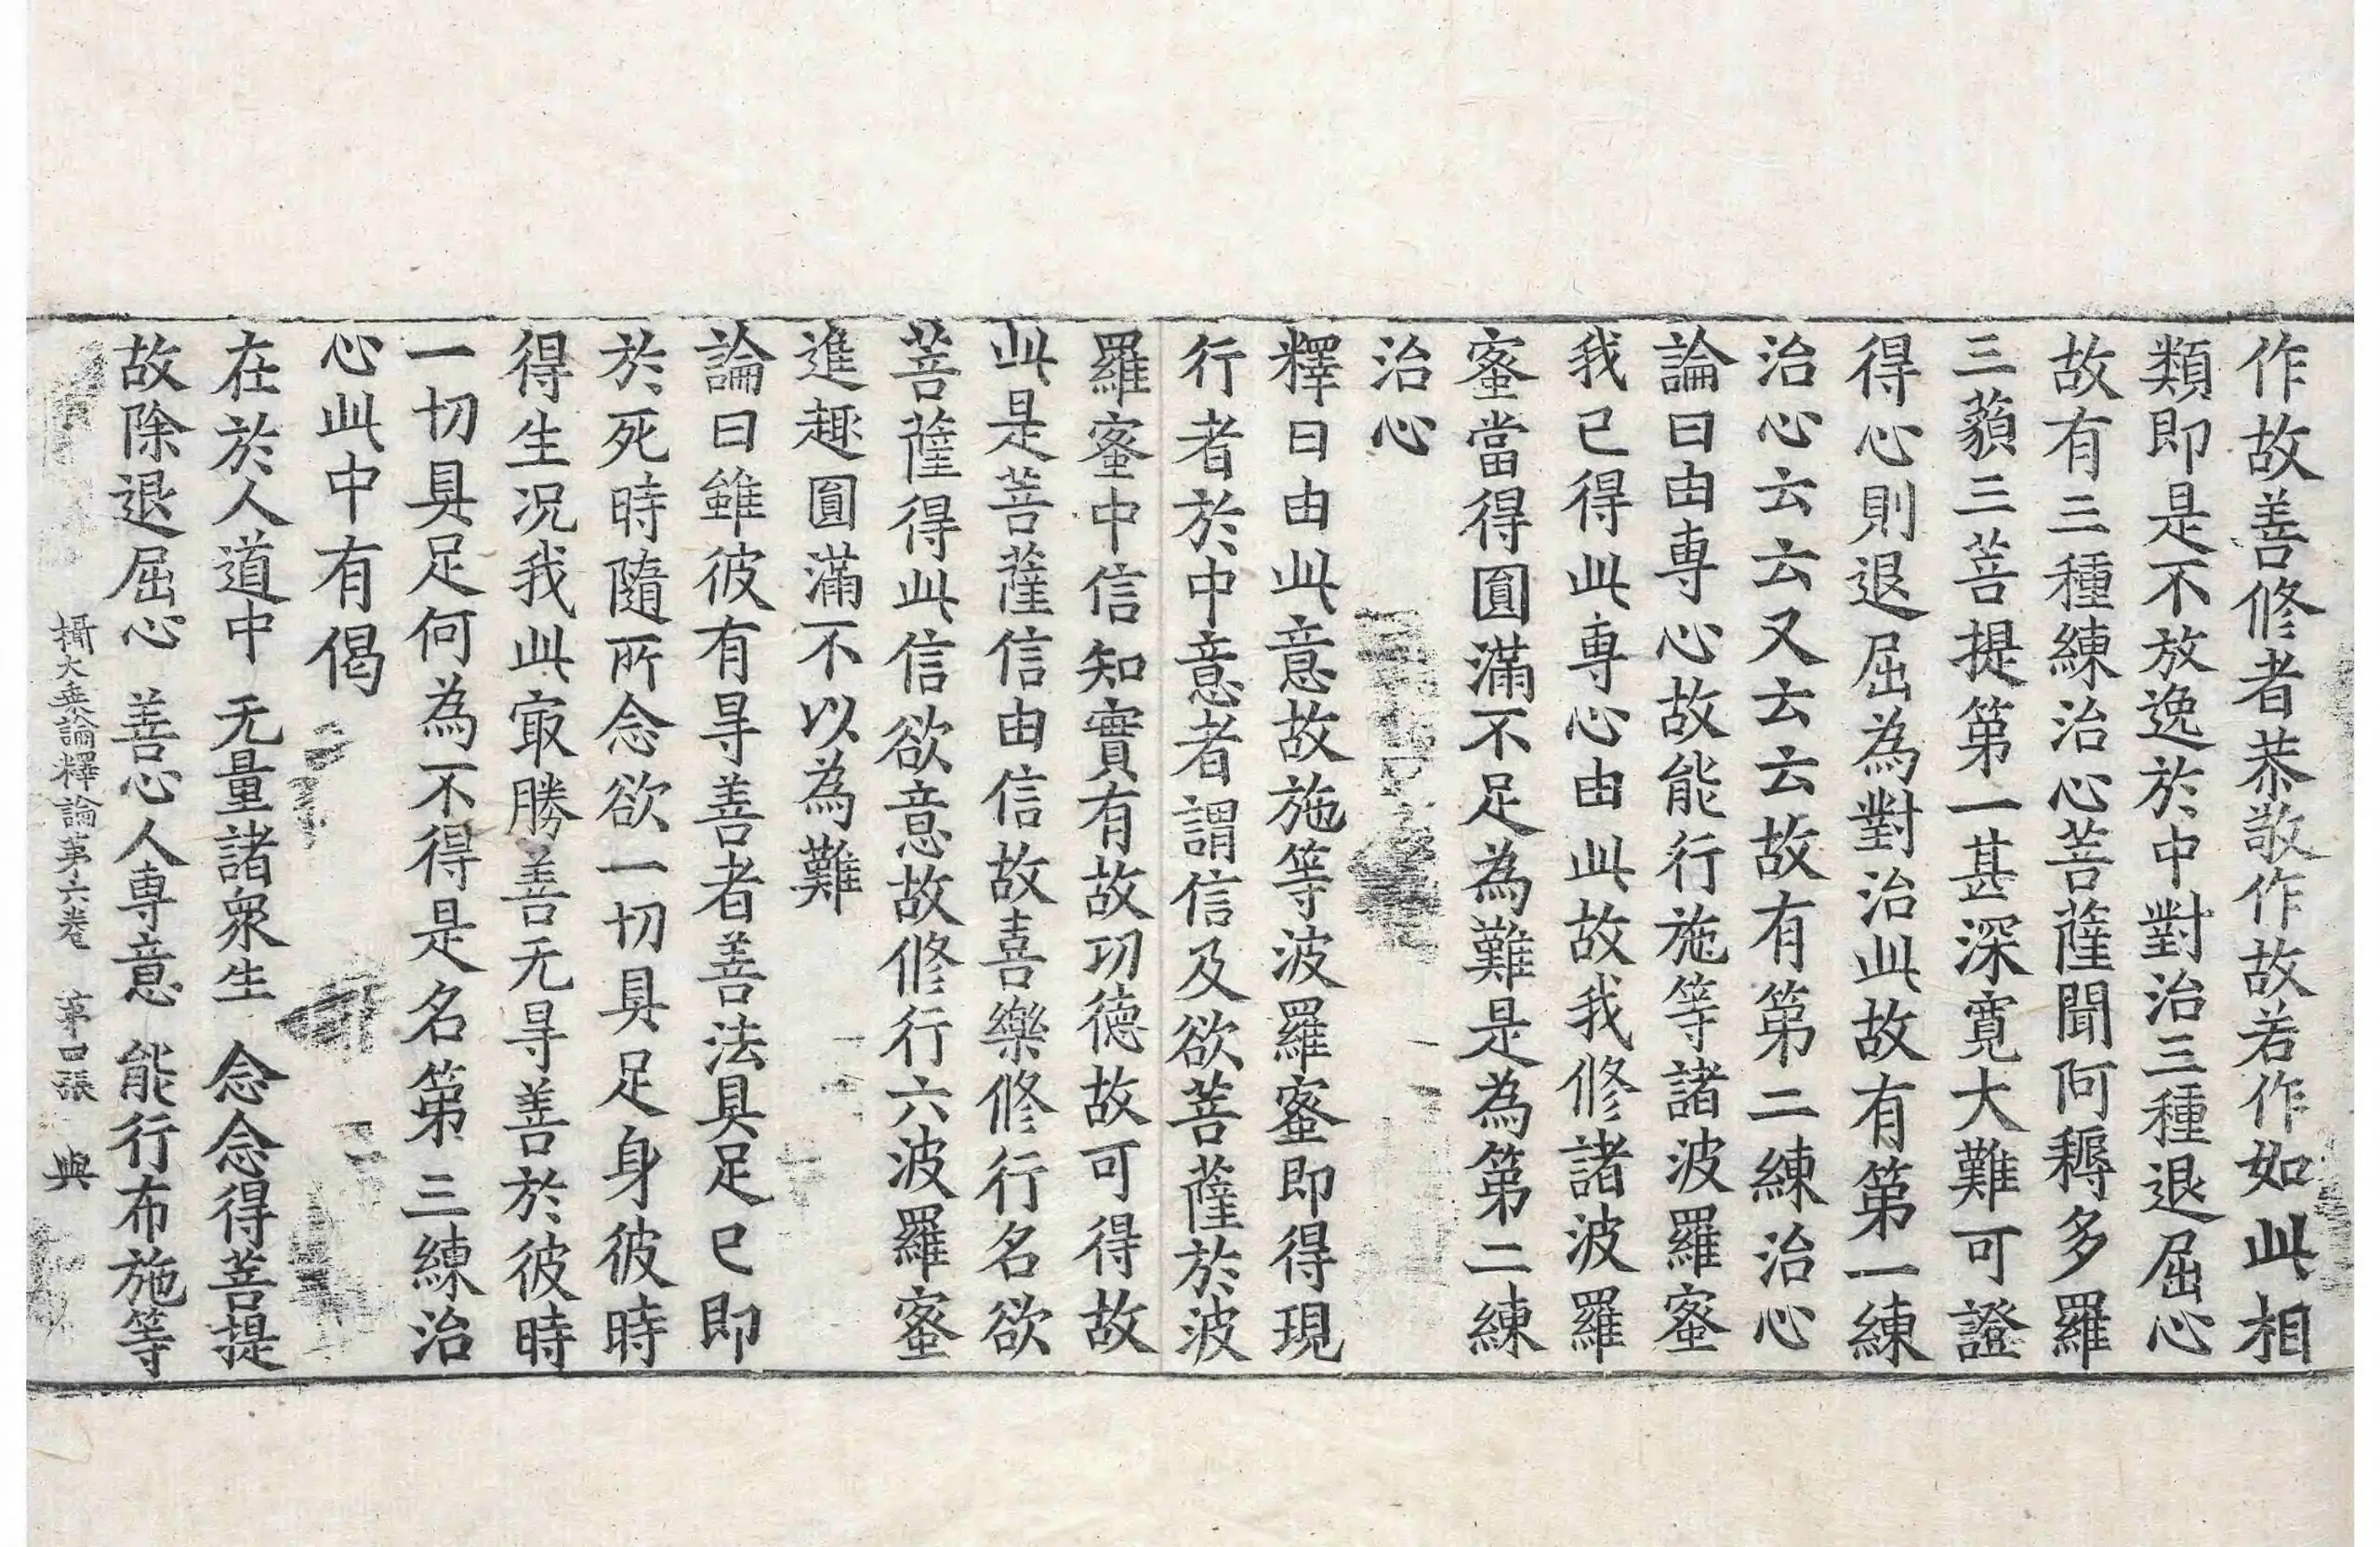 作故善修者恭敬作故若作如此相
類即是不放逸於中對治三種退屈心
故有三種練治心菩薩聞阿耨多羅
三藐三菩提第一甚深寬大難可證
得心則退屈為對治此故有第一練
治心云云又云云故有第二練治心
論曰由專心故能行施等諸波羅蜜
我已得此專心由此故我修諸波羅
蜜當得圓滿不足為難是為第二練
治心
釋曰由此意故施等波羅蜜即得現
行者於中意者謂信及欲菩薩於波
羅蜜中信知實有故功德故可得故
此是菩薩信由信故喜樂修行名欲
菩薩得此信欲意故修行六波羅蜜
進趣圓滿不以為難
論曰雖彼有㝵善者善法具足已即
於死時隨所念欲一切具足身彼時
得生况我此㝡勝善无㝵善於彼時
一切具足何為不得是名第三練治
心此中有偈
在於人道中　无量諸衆生　念念得菩提
故除退屈心　善心人專意　能行布施等
攝大乘論釋論第六卷　第四張　與